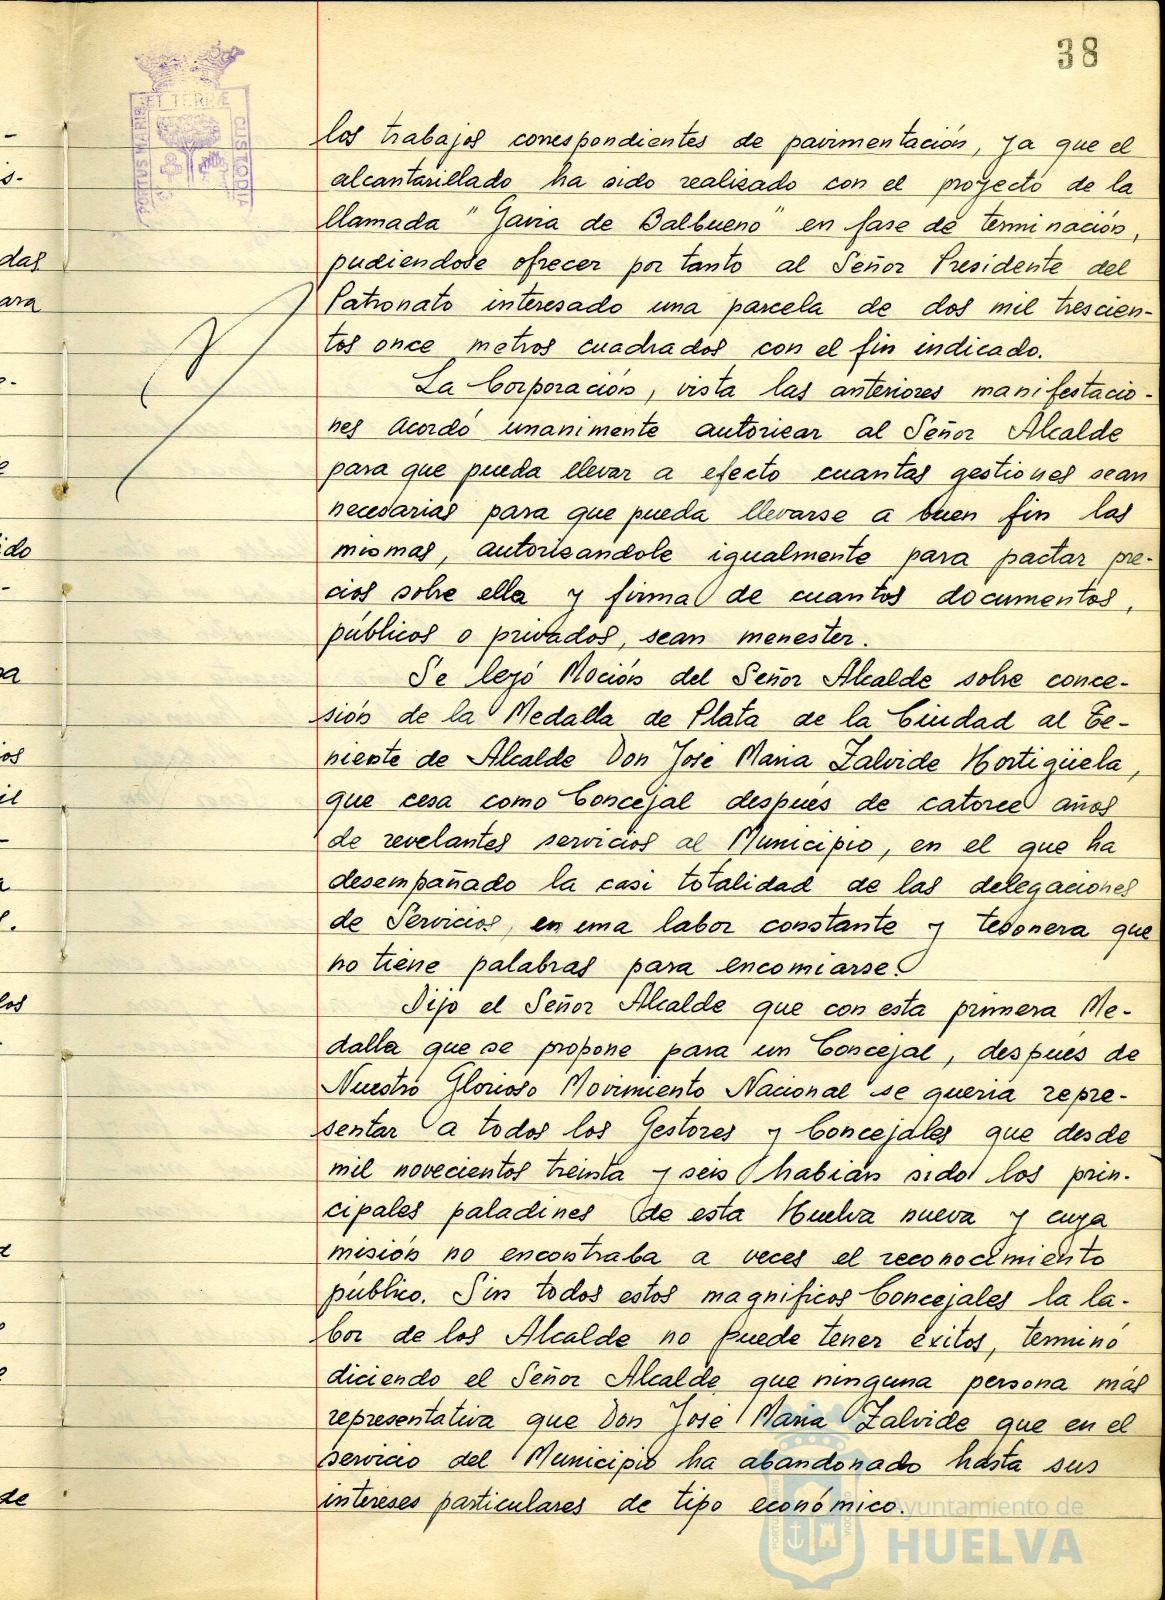 38
ET TERRÆ
PORTUS MARIS
CUSTODIA
los trabajos correspondientes de pavimentación, ya que el
alcantarillado ha sido realizado con el proyecto de la
llamada "Gavia de Balbueno" en fase de terminación,
pudiendose ofrecer por tanto al Señor Presidente del
Patronato interesado una parcela de dos mil trescien-
tos once metros cuadrados con el fin indicado.
La Corporación, vista las anteriores manifestacio-
nes acordó unanimente autorizar al Señor Alcalde
para que pueda llevar a efecto cuantas gestiones sean
necesarias para que pueda llevarse a buen fin las
mismas, autorizandole igualmente para pactar pre-
cios sobre ella y firma de cuantos documentos,
públicos o privados, sean menester.
Se leyó Moción del Señor Alcalde sobre conce-
sión de la Medalla de Plata de la Ciudad al Te-
niente de Alcalde Don José Maria Zalvide Hortigüela,
que cesa como Concejal después de catorce años
de revelantes servicios al Municipio, en el que ha
desempañado la casi totalidad de las delegaciones
de Servicios, en una labor constante y tesonera que
no tiene palabras para encomiarse.
Dijo el Señor Alcalde que con esta primera Me-
dalla que se propone para un Concejal, después de
Nuestro Glorioso Movimiento Nacional se quería repre-
sentar a todos los Gestores y Concejales que desde
mil novecientos treinta y seis habían sido los prin-
cipales paladines de esta Huelva nueva y cuya
misión no encontraba a veces el reconocimiento
público. Sin todos estos magnificos Concejales la la-
bor de los Alcalde no puede tener éxitos, terminó
diciendo el Señor Alcalde que ninguna persona más
representativa que Don José Maria Zalvide que en el
servicio del Municipio ha abandonado hasta sus
intereses particulares de tipo económico.
Ayuntamiento de
HUELVA